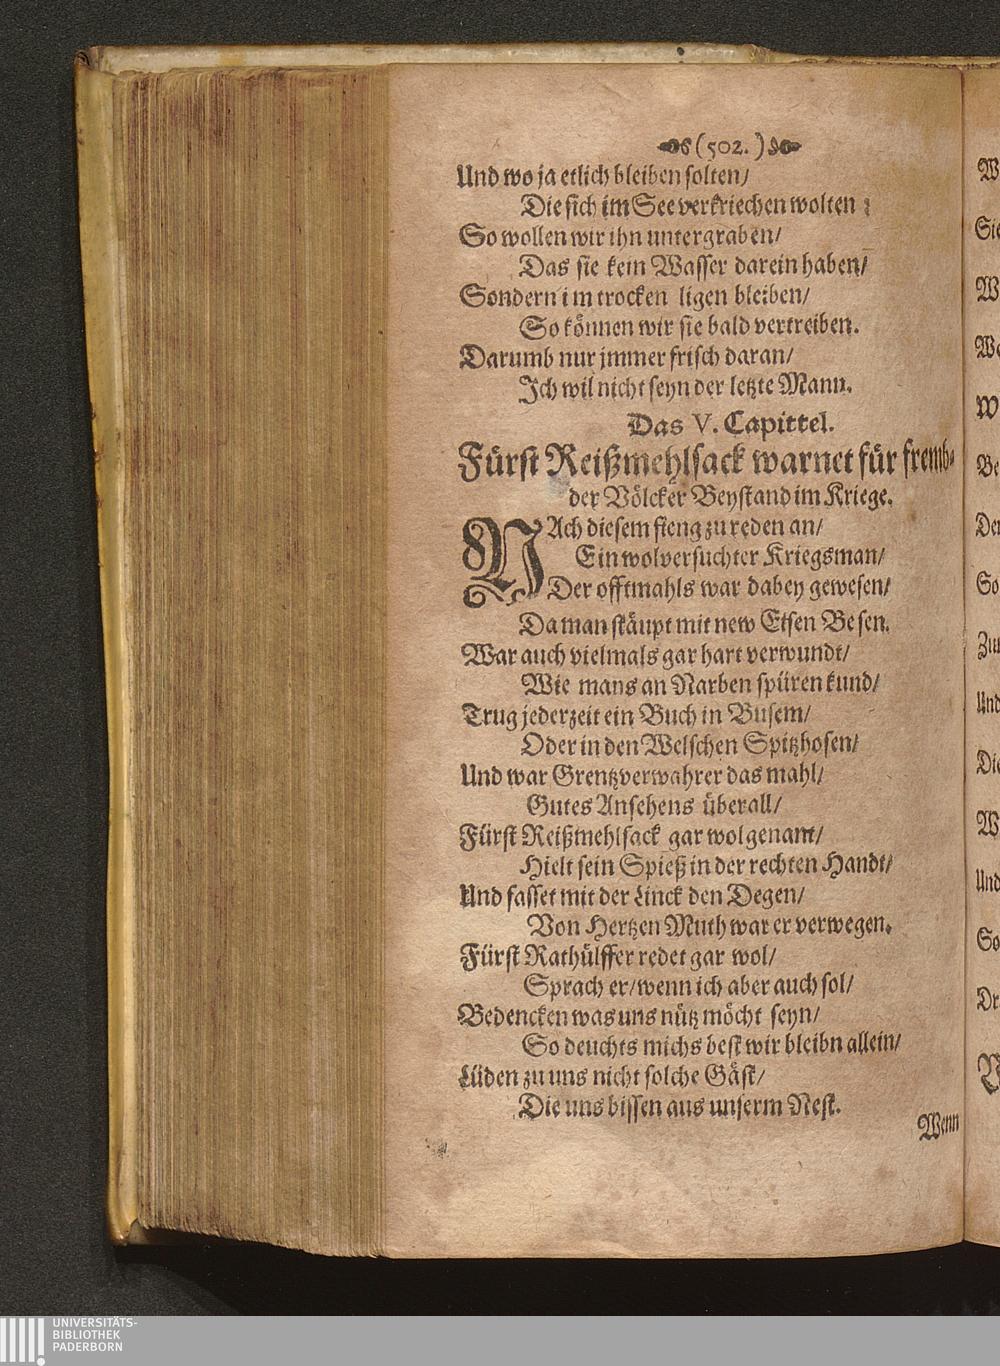 (502.)
Und wo ja etlich bleiben solten/
Die sich im See verkriechen wolten;
So wollen wir ihn untergraben/
Das sie kein Wasser darein haben/
Sondern im trocken ligen bleiben/
So können wir sie bald vertreiben.
Darumb nur jmmer frisch daran/
Ich wil nicht seyn der letzte Mann.
Das V. Capittel.
Fürst Reißmehlsack warnet für fremb-
der Völcker Beystand im Kriege.
NAch diesem fieng zu reden an/
Ein wolversuchter Kriegsman/
Der offtmahls war dabey gewesen/
Da man stäupt mit new Eisen Besen.
War auch vielmals gar hart verwundt/
Wie mans an Narben spüren kund/
Trug jederzeit ein Buch in Busem/
Oder in den Welschen Spitzhosen/
Und war Grentzverwahrer das mahl/
Gutes Ansehens überall/
Fürst Reißmehlsack gar wol genant/
Hielt sein Spieß in der rechten Handt/
Und fasset mit der Linck den Degen/
Von Hertzen Muth war er verwegen.
Fürst Rathülffer redet gar wol/
Sprach er/wenn ich aber auch sol/
Bedencken was uns nütz möcht seyn/
So deuchts michs best wir bleibn allein/
Lüden zu uns nicht solche Gäst/
Die uns bissen aus unserm Nest.
Wenn
W
Sie
W
We
W
Be
Der
So
Zur
Und
Die
W
Und
So
Dr
UNIVERSITÄTS-
BIBLIOTHEK
PADERBORN